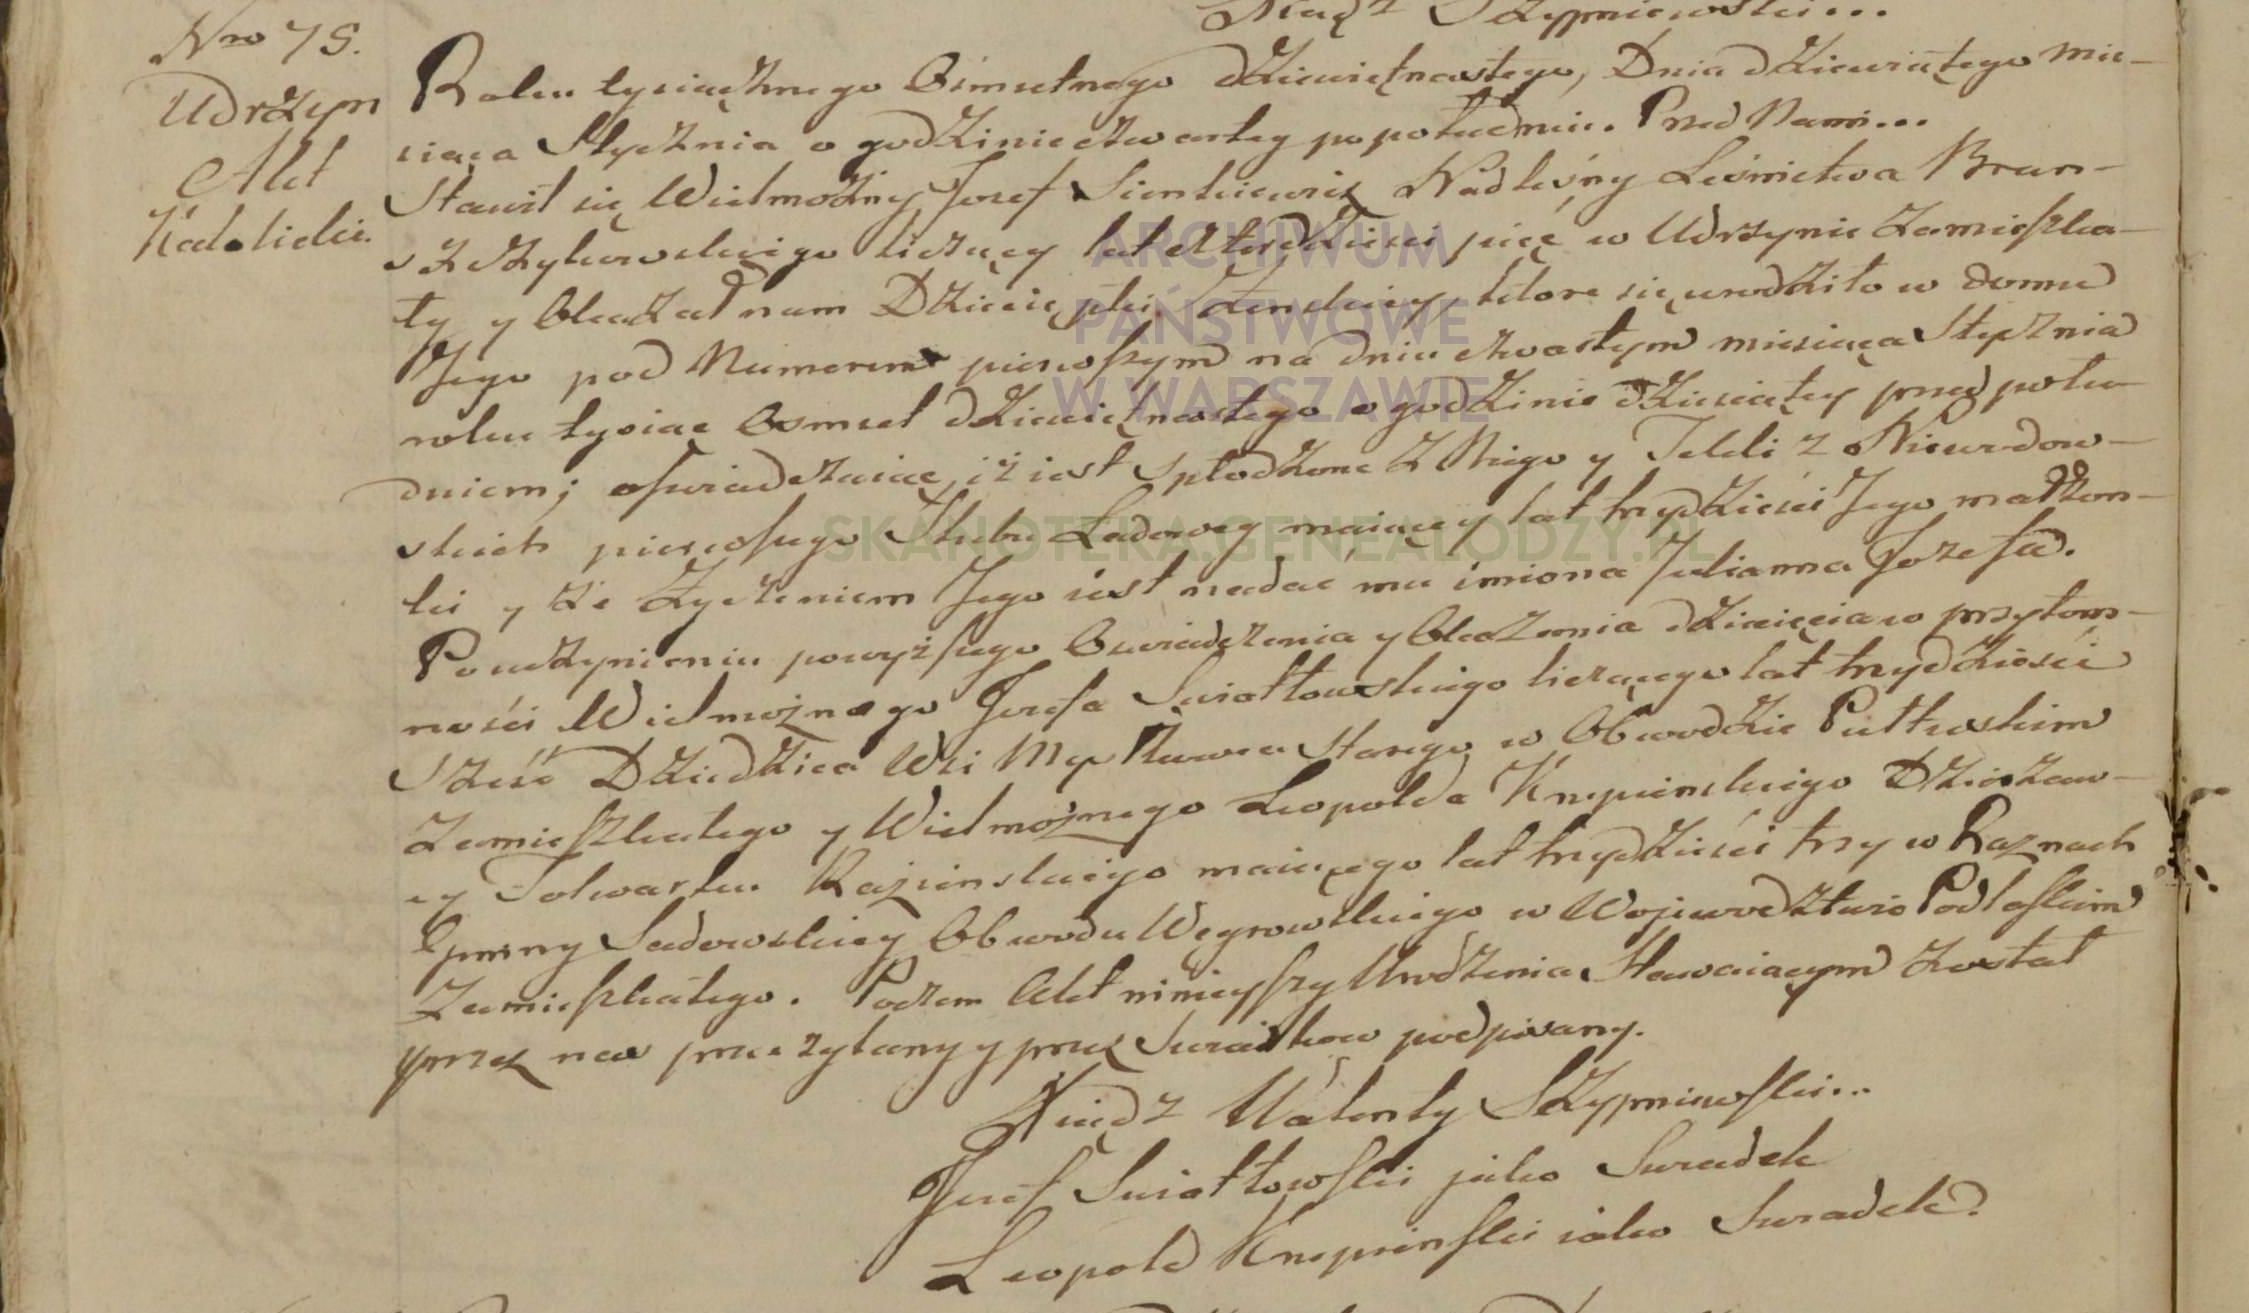 Xiądz Skrzypniewski...
Nro 75.
Udrzyn
Akt
Katolicki.
Roku tysiącznego Ośmsetnego dziewiętnastego, Dnia dziewiątego mie-
siąca Stycznia o godzinie czwartey po południu. Przed Nami...
Stawił się Wielmożny Jozef Sienkiewicz Nadleśny Leśnictwa Bran-
szczykowskiego liczący lat czterdzieści pięć w Udrzynie zamieszka-
ły y Okazał nam Dziecię płci Żenskiey, ktore się urodziło w domu
Jego pod Numerem pierwszym na dniu czwartym miesiąca Stycznia
roku tysiąc Osmset dziewiętnastego o godzinie dziesiątey przed połu-
dniem; oswiadczaiąc, iż iest spłodzone z Niego y Tekli z
skich pierwszego Szlubu maiącey lat trzydzieści Jego małżon-
ki y że życzeniem Jego iest nadać mu imiona Julianna Jozefa.
Po uczynieniu powyższego Oswiadczenia y Okazania dziecięcia w przytom-
ności Wielmożnego Jozefa Swiatłowskiego liczącego lat trzydzieści
sześć Dziedzica Wsi Starego w Obwodzie Pułtuskim
Zamieszkałego y Wielmożnego Leopolda Krzepinskiego Dzierżaw-
cy Folwarku maiącego lat trzydzieści trzy w
Gminy Sadowskiey Obwodu Węgrowskiego w Wojewodztwie Podlaskim
Zamieszkałego. Poczem Akt ninieyszy Urodzenia Stawaiącym został
przez nas przeczytany y przez Swiadkow podpisany.
Xiądz Walenty Skrzypniewski...
Jozef Swiatłowski jako Swiadek
Leopold Krzepinski iako Swiadek.
ARCHIWUM
PAŃSTWOWE
W WARSZAWIE
SKANOTEKA.GENEALODZY.PL